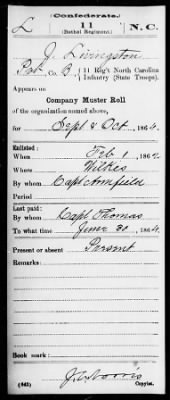 (Confederate.)
L 11 N.C.
(Bethel Regiment.)
J. Livingston
Pvt, Co. B, 11 Reg't North Carolina
Infantry (State Troops).
Appears on
Company Muster Roll
of the organization named above,
for Sept & Oct, 1864.
Enlisted:
When Feb 1, 186
Where Wilkes
By whom Capt Armfield
Period
Last paid:
By whom Capt Thomas
To what time June 30, 1864.
Present or absent Present
Remarks:
Book mark:
(642) Copyist.